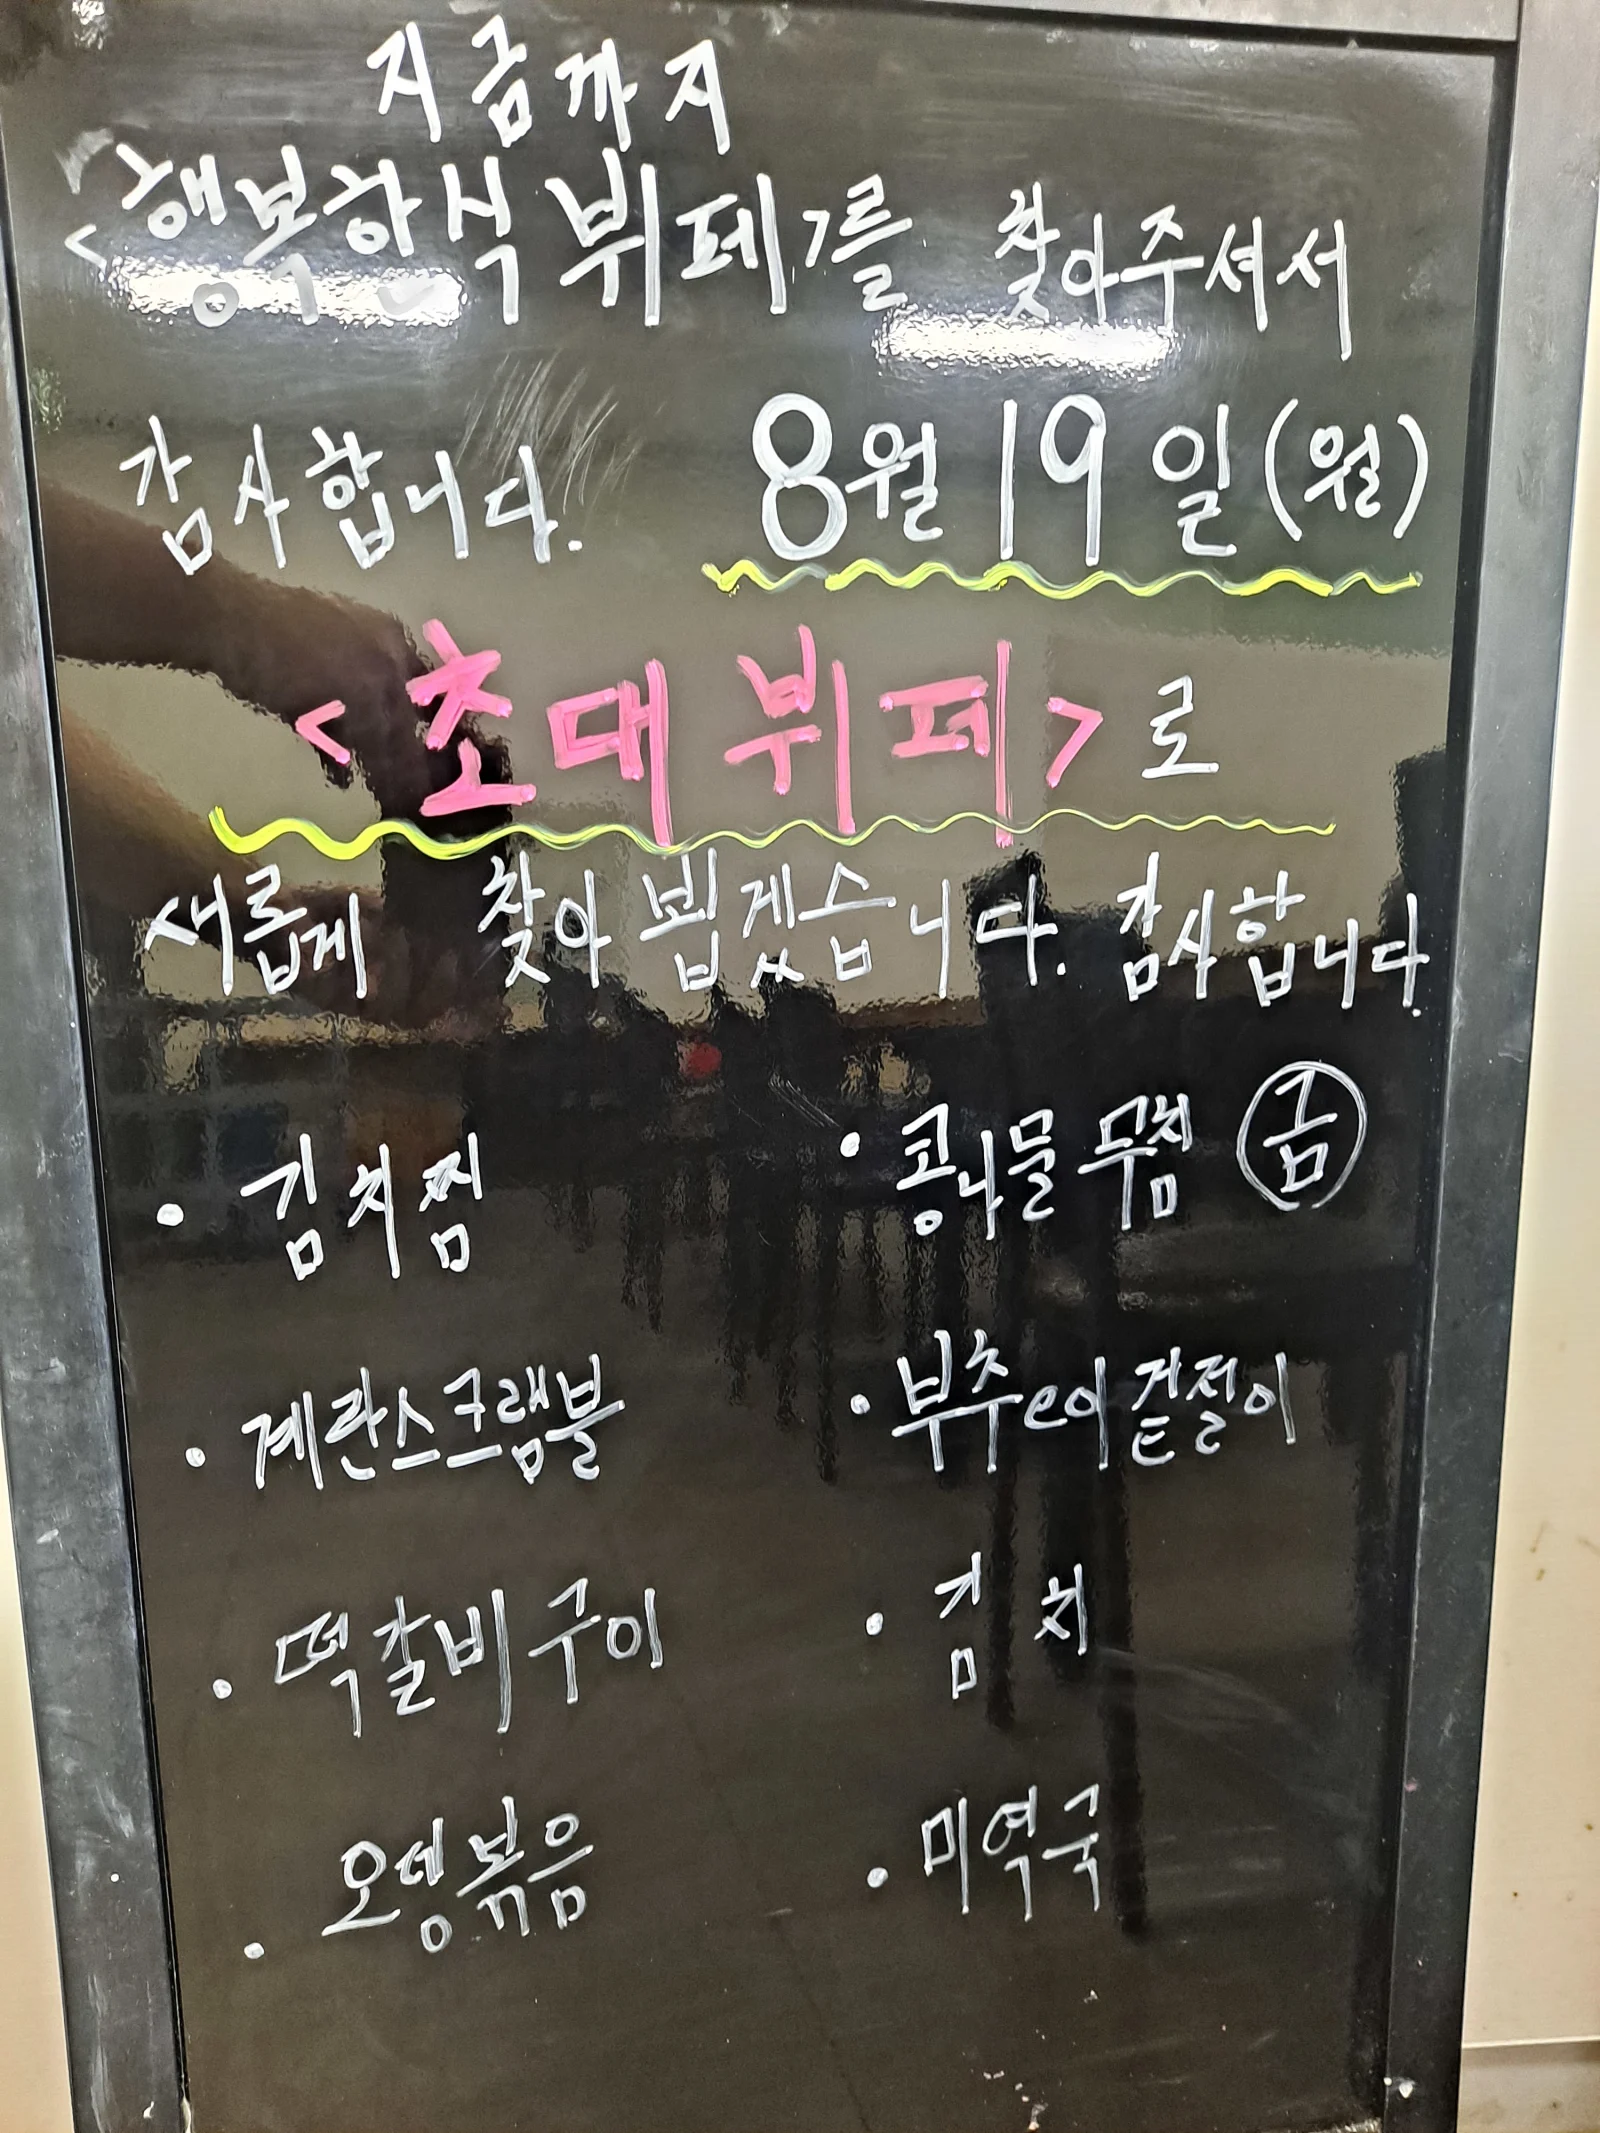 지금까지
<행복한식뷔페>를 찾아주셔서
감사합니다. 8월 19일(월)
<초대뷔페>로
새롭게 찾아 뵙겠습니다. 감사합니다.
• 김치찜
• 콩나물무침 금
• 계란스크램블
• 부추오이겉절이
• 떡갈비구이
• 김치
• 오뎅볶음
• 미역국